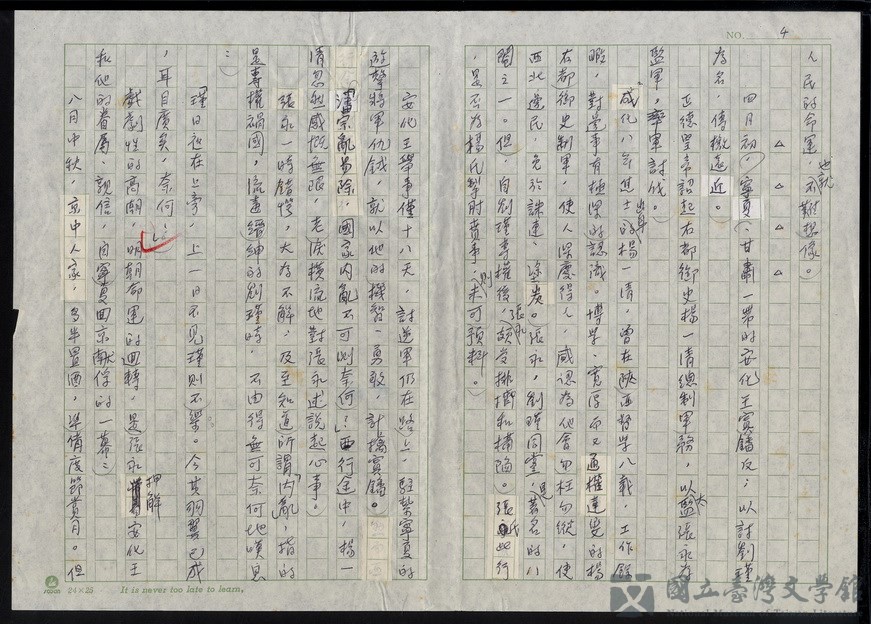 NO. 4
人民的命運，也就不難想像。
△ △ △ △
四月初，寧夏、甘肅一帶的安化王寘鐇反；以討劉瑾
為名，傳檄遠近。
正德皇帝詔起右都御史楊一清總制軍務，以太監張永為
監軍，率軍討伐。
成化八年進士出身的楊一清，曾在陝西督學八載，工作餘
暇，對邊事有極深的認識。博學、寬厚而又通權達變的楊
右都御史制軍，使人深慶得人，咸認為他會勿枉勿縱，使
西北邊民，免於誅連、塗炭。張永，劉瑾同黨，是著名的八
閹之一。但，自劉瑾專權後，張永頗受排擠和構陷。張氏此行
，是否為楊氏掣肘費事，則未可預料。
安化王舉事僅十八天，討逆軍仍在路上，駐紮寧夏的
遊擊將軍仇鉞，就以他的機智、勇敢，計擒寘鐇。
「藩宗亂易除，國家內亂不可測奈何？」西行途中，楊一
清忽然感慨無限，老淚橫流地對張永述說起心事。
張永一時錯愕，大為不解，及至知道所謂「內亂」，指的
是專權禍國，流毒縉紳的劉瑾時，不由得無可奈何地嘆息
：
「瑾日夜在上旁，上一日不見瑾則不樂。今其羽翼已成
，耳目廣矣，奈何！」
戲劇性的高潮，明朝命運的迴轉，是張永押解安化王
和他的眷屬、親信，由寧夏回京獻俘的一幕：
八月中秋，京中人家，多半置酒，準備度節賞月。但
24×25 It is never too late to learn.
國立臺灣文學館